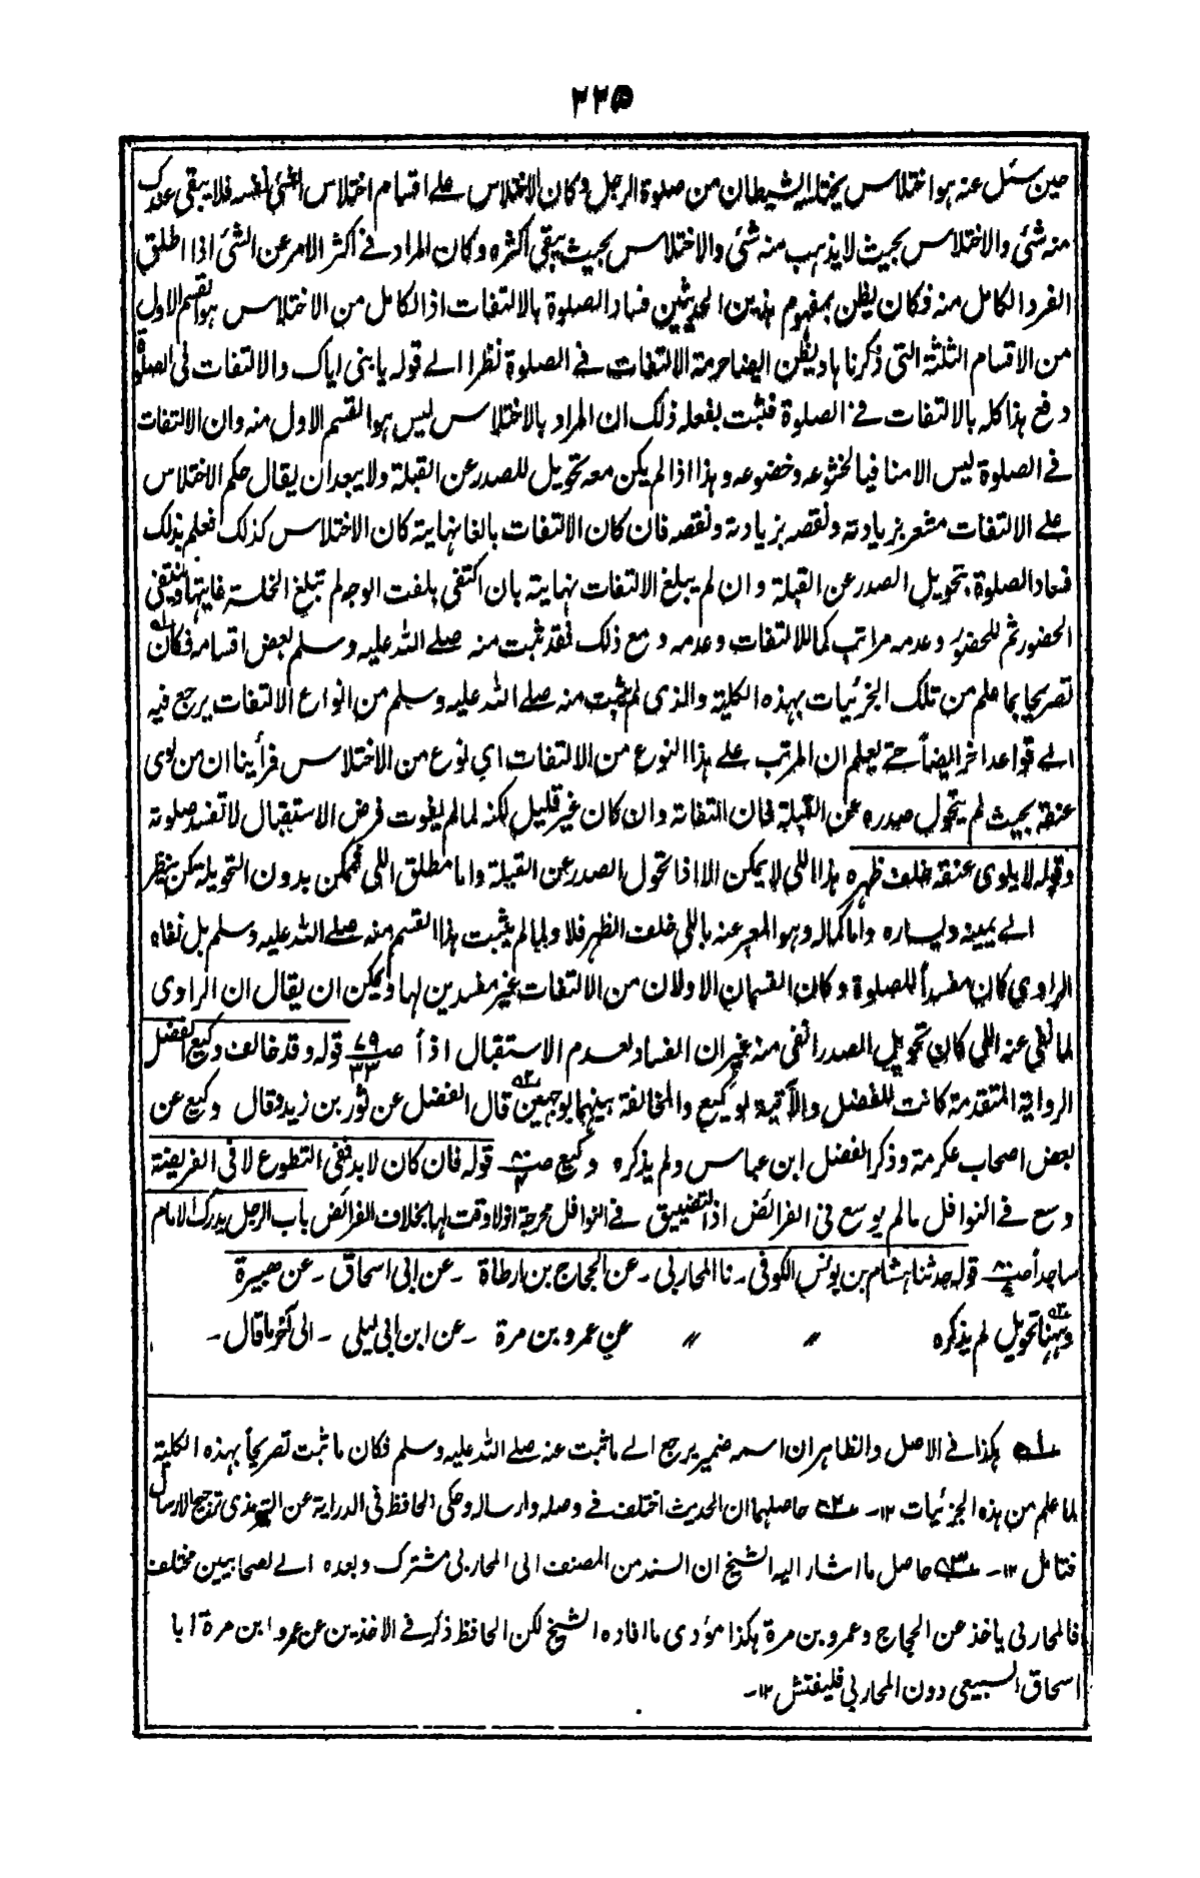 ۲۲۵
حين سئل عنه هو اختلاس يختلسه الشيطان من صلوة الرجل وكان الاختلاس على اقسام اختلاس الشئ لنفسه فلا يبقى عندك
منه شئ والاختلاس بحيث لا يذهب منه شئ والاختلاس بحيث يبقى اكثره وكان المراد فى اكثر الامر عن الشئ اذا اطلق
الفرد الكامل منه فكان يظن بمفهوم هذين الحديثين فساد الصلوة بالالتفات اذ الكامل من الاختلاس هو القسم الاول
من الاقسام الثلثة التى ذكرناها ويظن ايضا حرمة الالتفات فى الصلوة نظرا الى قوله يا بنى اياك والالتفات فى الصلوة
دفع هذا كله بالالتفات فى الصلوة فثبت بفعله ذلك ان المراد بالاختلاس ليس هو القسم الاول منه وان الالتفات
فى الصلوة ليس الا منافيا لخشوعه وخضوعه وهذا اذا لم يكن معه تحويل للصدر عن القبلة ولا يبعد ان يقال حكم الاختلاس
على الالتفات مشعر بزيادته ونقصه بزيادته ونقصه فان كان الالتفات بالغا نهايته كان الاختلاس كذلك فعلم بذلك
فساد الصلوة بتحويل الصدر عن القبلة وان لم يبلغ الالتفات نهايته بان اكتفى بلفت الوجه لم تبلغ الخلسة غايتها فينتفى
الحضور ثم للحضور وعدمه مراتب كما للالتفات وعدمه ومع ذلك فقد ثبت منه صلى الله عليه وسلم بعض اقسامه فكان
تصريحا بما علم من تلك الجزئيات بهذه الكلية والذى لم يثبت منه صلى الله عليه وسلم من انواع الالتفات يرجع فيه
الى قواعد اخر ايضاً حتى يعلم ان المرتب على هذا النوع من الالتفات اى نوع من الاختلاس فرأينا ان من لوى
عنقه بحيث لم يتحول صدره عن القبلة فان التفاته وان كان غير قليل لكنه لما لم يفوت فرض الاستقبال لا تفسد صلوته
وقوله لا يلوى عنقه خلف ظهره هذا اللى لا يمكن الا اذا تحول الصدر عن القبلة واما مطلق اللى فممكن بدون التحويل كمن ينظر
الى يمينه ويساره واما كماله وهو المعبر عنه باللى خلف الظهر فلا ولما لم يثبت هذا القسم منه صلى الله عليه وسلم بل نفاه
الراوى كان مفسداً للصلوة وكان القسمان الاولان من الالتفات غير مفسدين لها ويمكن ان يقال ان الراوى
لما نفى عنه اللى كان تحويل الصدر انفى منه غير ان الفساد لعدم الاستقبال اذاً صـ۷۹/۳۳ قوله وقد خالف وكيع الفضل
الرواية المتقدمة كانت للفضل والآتية لوكيع والمخالفة بينهما بوجهين ۲ قال الفضل عن ثور بن زيد وقال وكيع عن
بعض اصحاب عكرمة وذكر الفضل ابن عباس ولم يذكره وكيع صـ قوله فان كان لا بد ففى التطوع لا فى الفريضة
وسع فى النوافل ما لم يوسع فى الفرائض اذ التضييق فى النوافل محرجة اذ لا وقت لها بخلاف الفرائض باب الرجل يدرك الامام
ساجداً صـ قوله حدثنا هشام بن يونس الكوفى - نا المحاربى - عن الحجاج بن ارطاة - عن ابى اسحاق - عن هبيرة
وههنا تحويل ۳ لم يذكره 〃 〃 عن عمرو بن مرة - عن ابن ابى ليلى - الى آخر ما قال -
۱ هكذا فى الاصل والظاهر ان اسمه ضمير يرجع الى ما ثبت عنه صلى الله عليه وسلم فكان ما ثبت تصريحاً بهذه الكلية
لما علم من هذه الجزئيات ۱۲- ۲ حاصلهما ان الحديث اختلف فى وصله وارساله وحكى الحافظ فى الدراية عن الترمذى ترجيح الارسال
فتامل ۱۲- ۳ حاصل ما اشار اليه الشيخ ان السند من المصنف الى المحاربى مشترك وبعده الى لصحابيين مختلف
فالمحاربى ياخذ عن الحجاج وعمرو بن مرة هكذا مؤدى ما افاده الشيخ لكن الحافظ ذكر فى الاخذين عن عمرو بن مرة ابا
اسحاق السبيعى دون المحاربى فليفتش ۱۲-